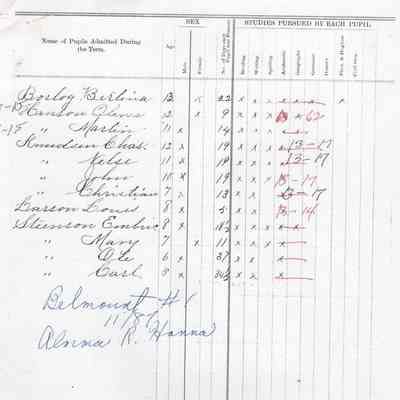 SEX STUDIES PURSUED BY EACH PUPIL
Name of Pupils Admitted During the Term. Age Male Female Reading Writing Spelling Arithmetic Geography Grammar History Phys. & Hygiene
Borlog Bertina 13 x 22 x x x x x
Hanson 12 x 9 x x x 62
" Martin 11 x 14 x x x
Knudson Chas. 12 x 19 x x x 13-17
" Nelse 11 x 19 x x x 13-17
" John 10 x 19 x x x 13-17
" Christian 7 x 13 x x 13-17
Larson Louis 8 x 5 x x 13-14
Steenson 8 x 18½ x x x x x
" Mary 7 x 11 x x x x
" Ole 6 x 37 x x x
" Carl 9 x 34½ x x x
Belmount #1
11/87
R. Hanna